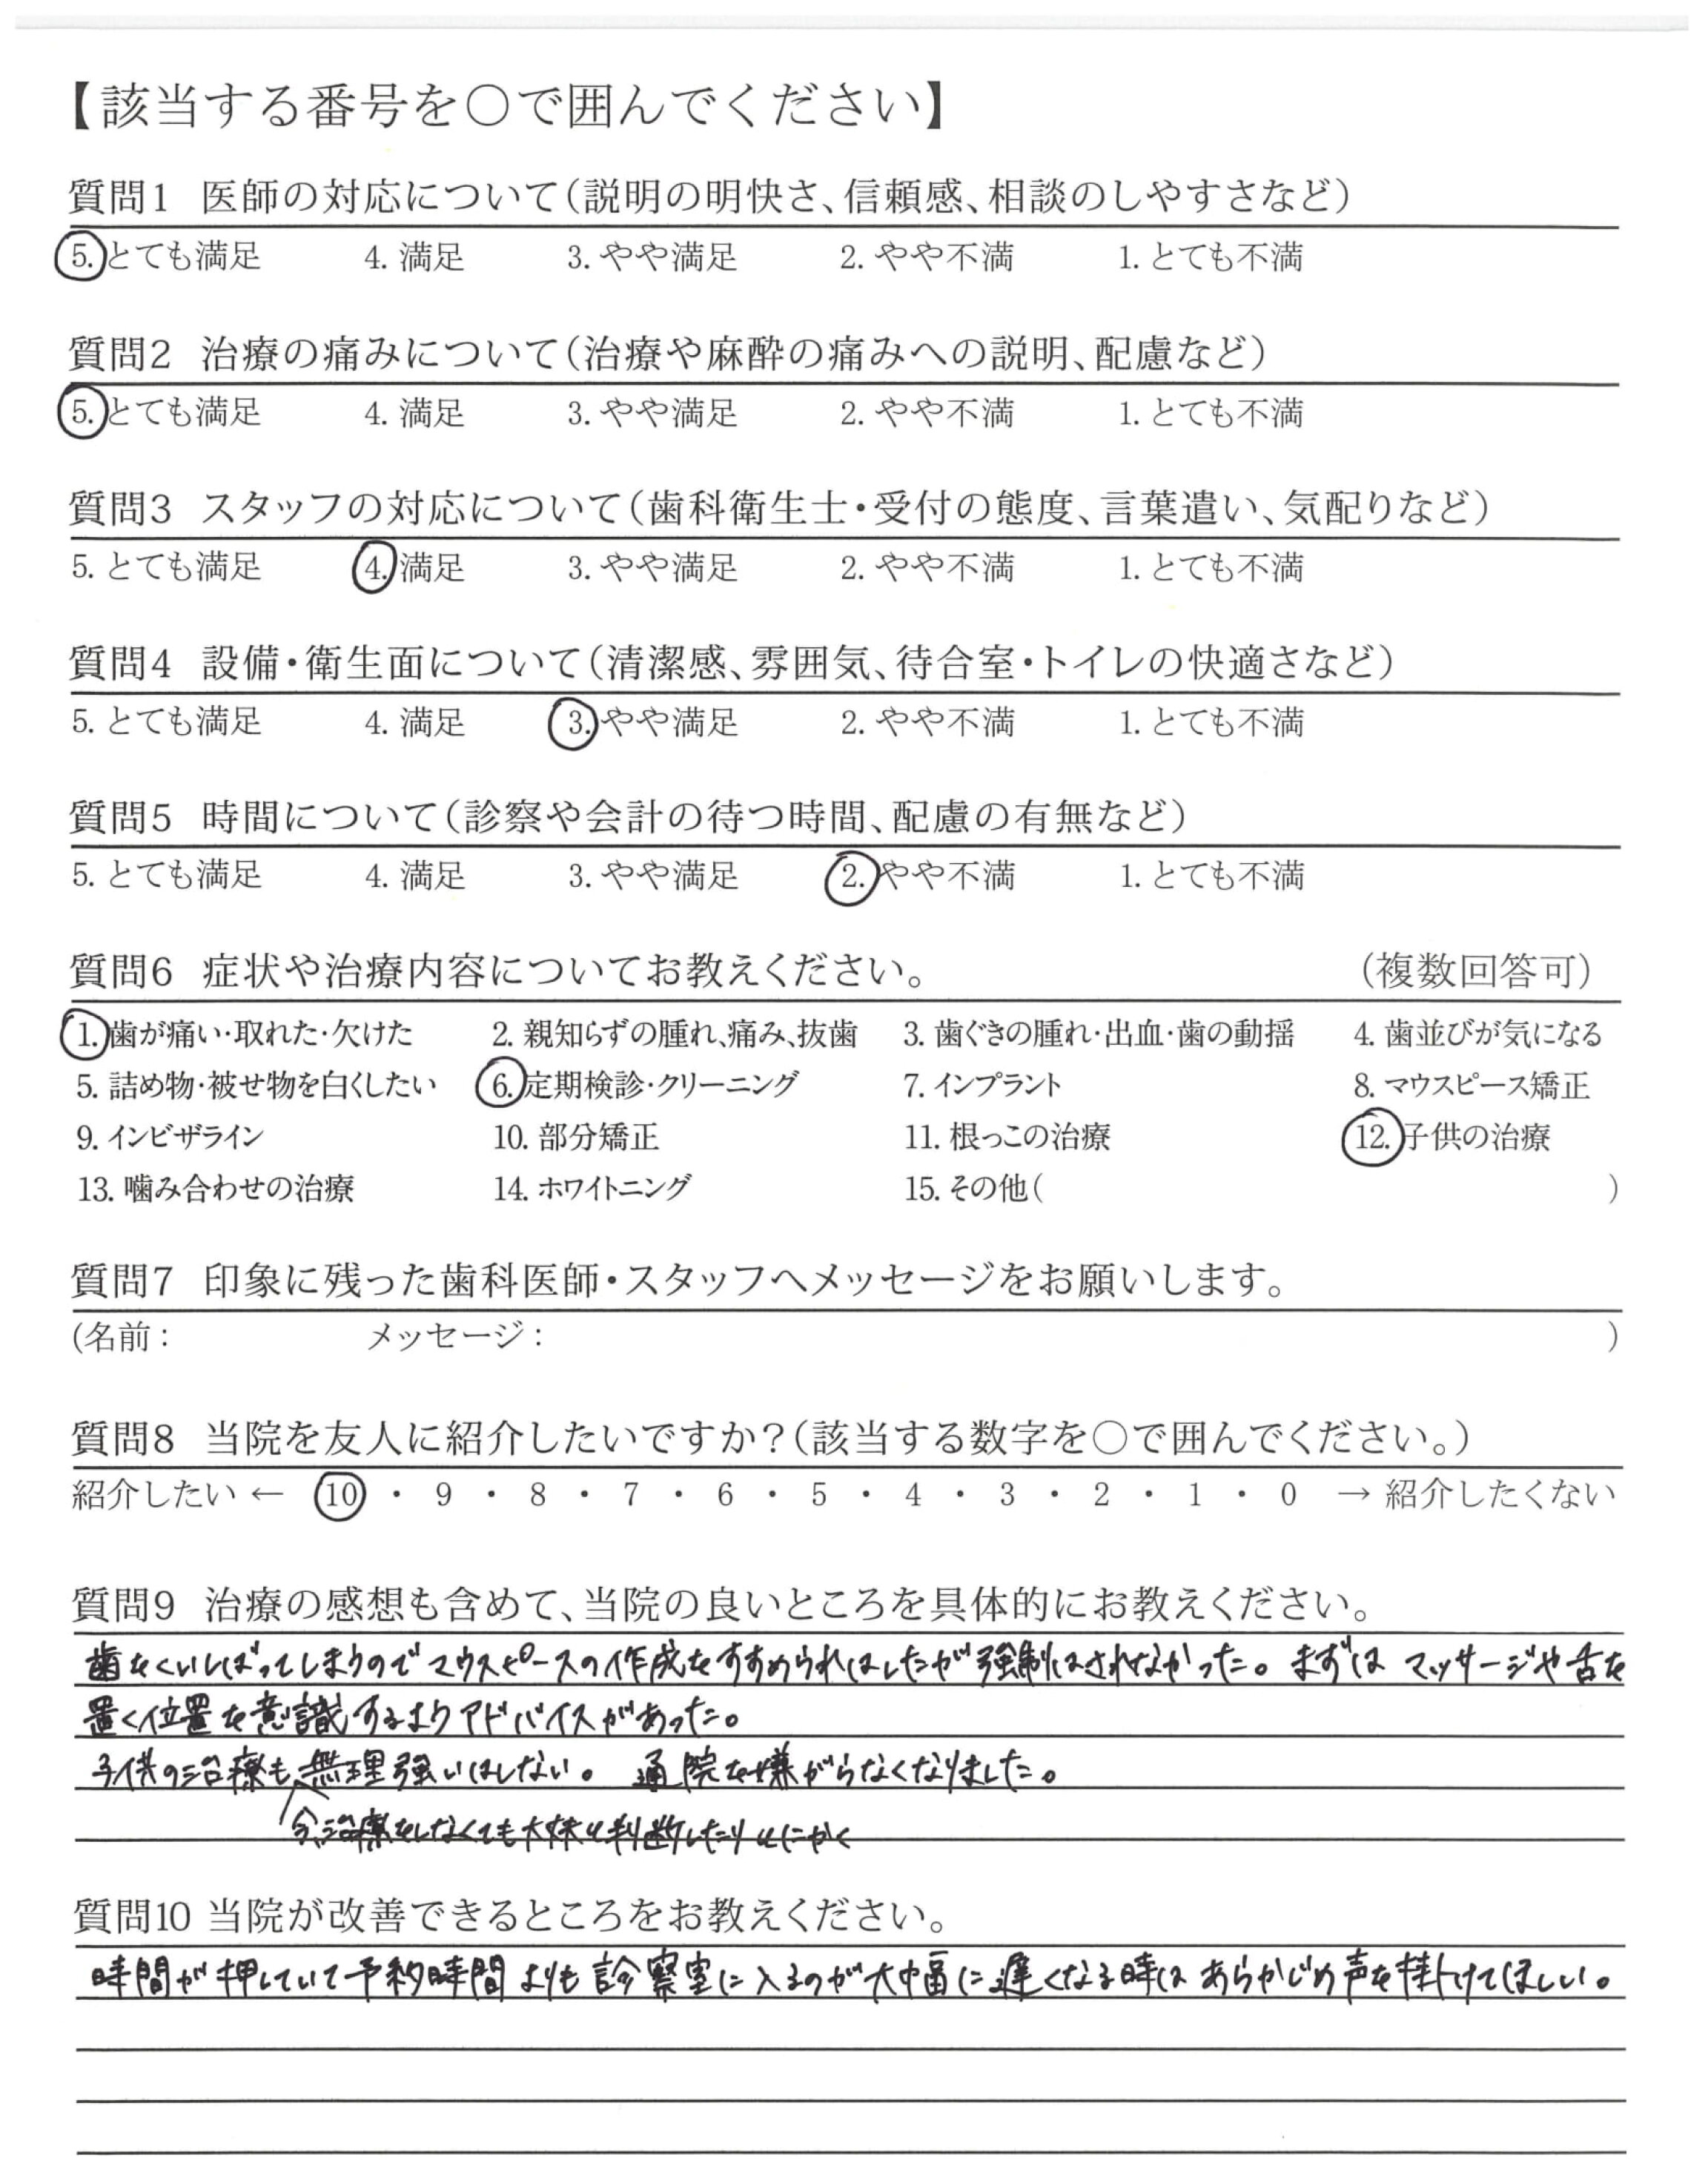 【該当する番号を○で囲んでください】
質問1 医師の対応について(説明の明快さ、信頼感、相談のしやすさなど)
5. とても満足 4. 満足 3. やや満足 2. やや不満 1. とても不満
質問2 治療の痛みについて(治療や麻酔の痛みへの説明、配慮など)
5. とても満足 4. 満足 3. やや満足 2. やや不満 1. とても不満
質問3 スタッフの対応について(歯科衛生士・受付の態度、言葉遣い、気配りなど)
5. とても満足 4. 満足 3. やや満足 2. やや不満 1. とても不満
質問4 設備・衛生面について(清潔感、雰囲気、待合室・トイレの快適さなど)
5. とても満足 4. 満足 3. やや満足 2. やや不満 1. とても不満
質問5 時間について(診察や会計の待つ時間、配慮の有無など)
5. とても満足 4. 満足 3. やや満足 2. やや不満 1. とても不満
質問6 症状や治療内容についてお教えください。 (複数回答可)
1. 歯が痛い・取れた・欠けた 2. 親知らずの腫れ、痛み、抜歯 3. 歯ぐきの腫れ・出血・歯の動揺 4. 歯並びが気になる
5. 詰め物・被せ物を白くしたい 6. 定期検診・クリーニング 7. インプラント 8. マウスピース矯正
9. インビザライン 10. 部分矯正 11. 根っこの治療 12. 子供の治療
13. 噛み合わせの治療 14. ホワイトニング 15. その他( )
質問7 印象に残った歯科医師・スタッフへメッセージをお願いします。
(名前: メッセージ: )
質問8 当院を友人に紹介したいですか?(該当する数字を○で囲んでください。)
紹介したい ← 10 ・ 9 ・ 8 ・ 7 ・ 6 ・ 5 ・ 4 ・ 3 ・ 2 ・ 1 ・ 0 → 紹介したくない
質問9 治療の感想も含めて、当院の良いところを具体的にお教えください。
歯をくいしばってしまうのでマウスピースの作成をすすめられはしたが強制はされなかった。まずは マッサージや舌を
置く位置を意識するようアドバイスがあった。
子供の治療も無理強いはしない。 通院を嫌がらなくなりました。
今治療をしなくても大丈夫と判断したりとにかく
質問10 当院が改善できるところをお教えください。
時間が押していて予約時間よりも診察室に入るのが大幅に遅くなる時はあらかじめ声を掛けてほしい。